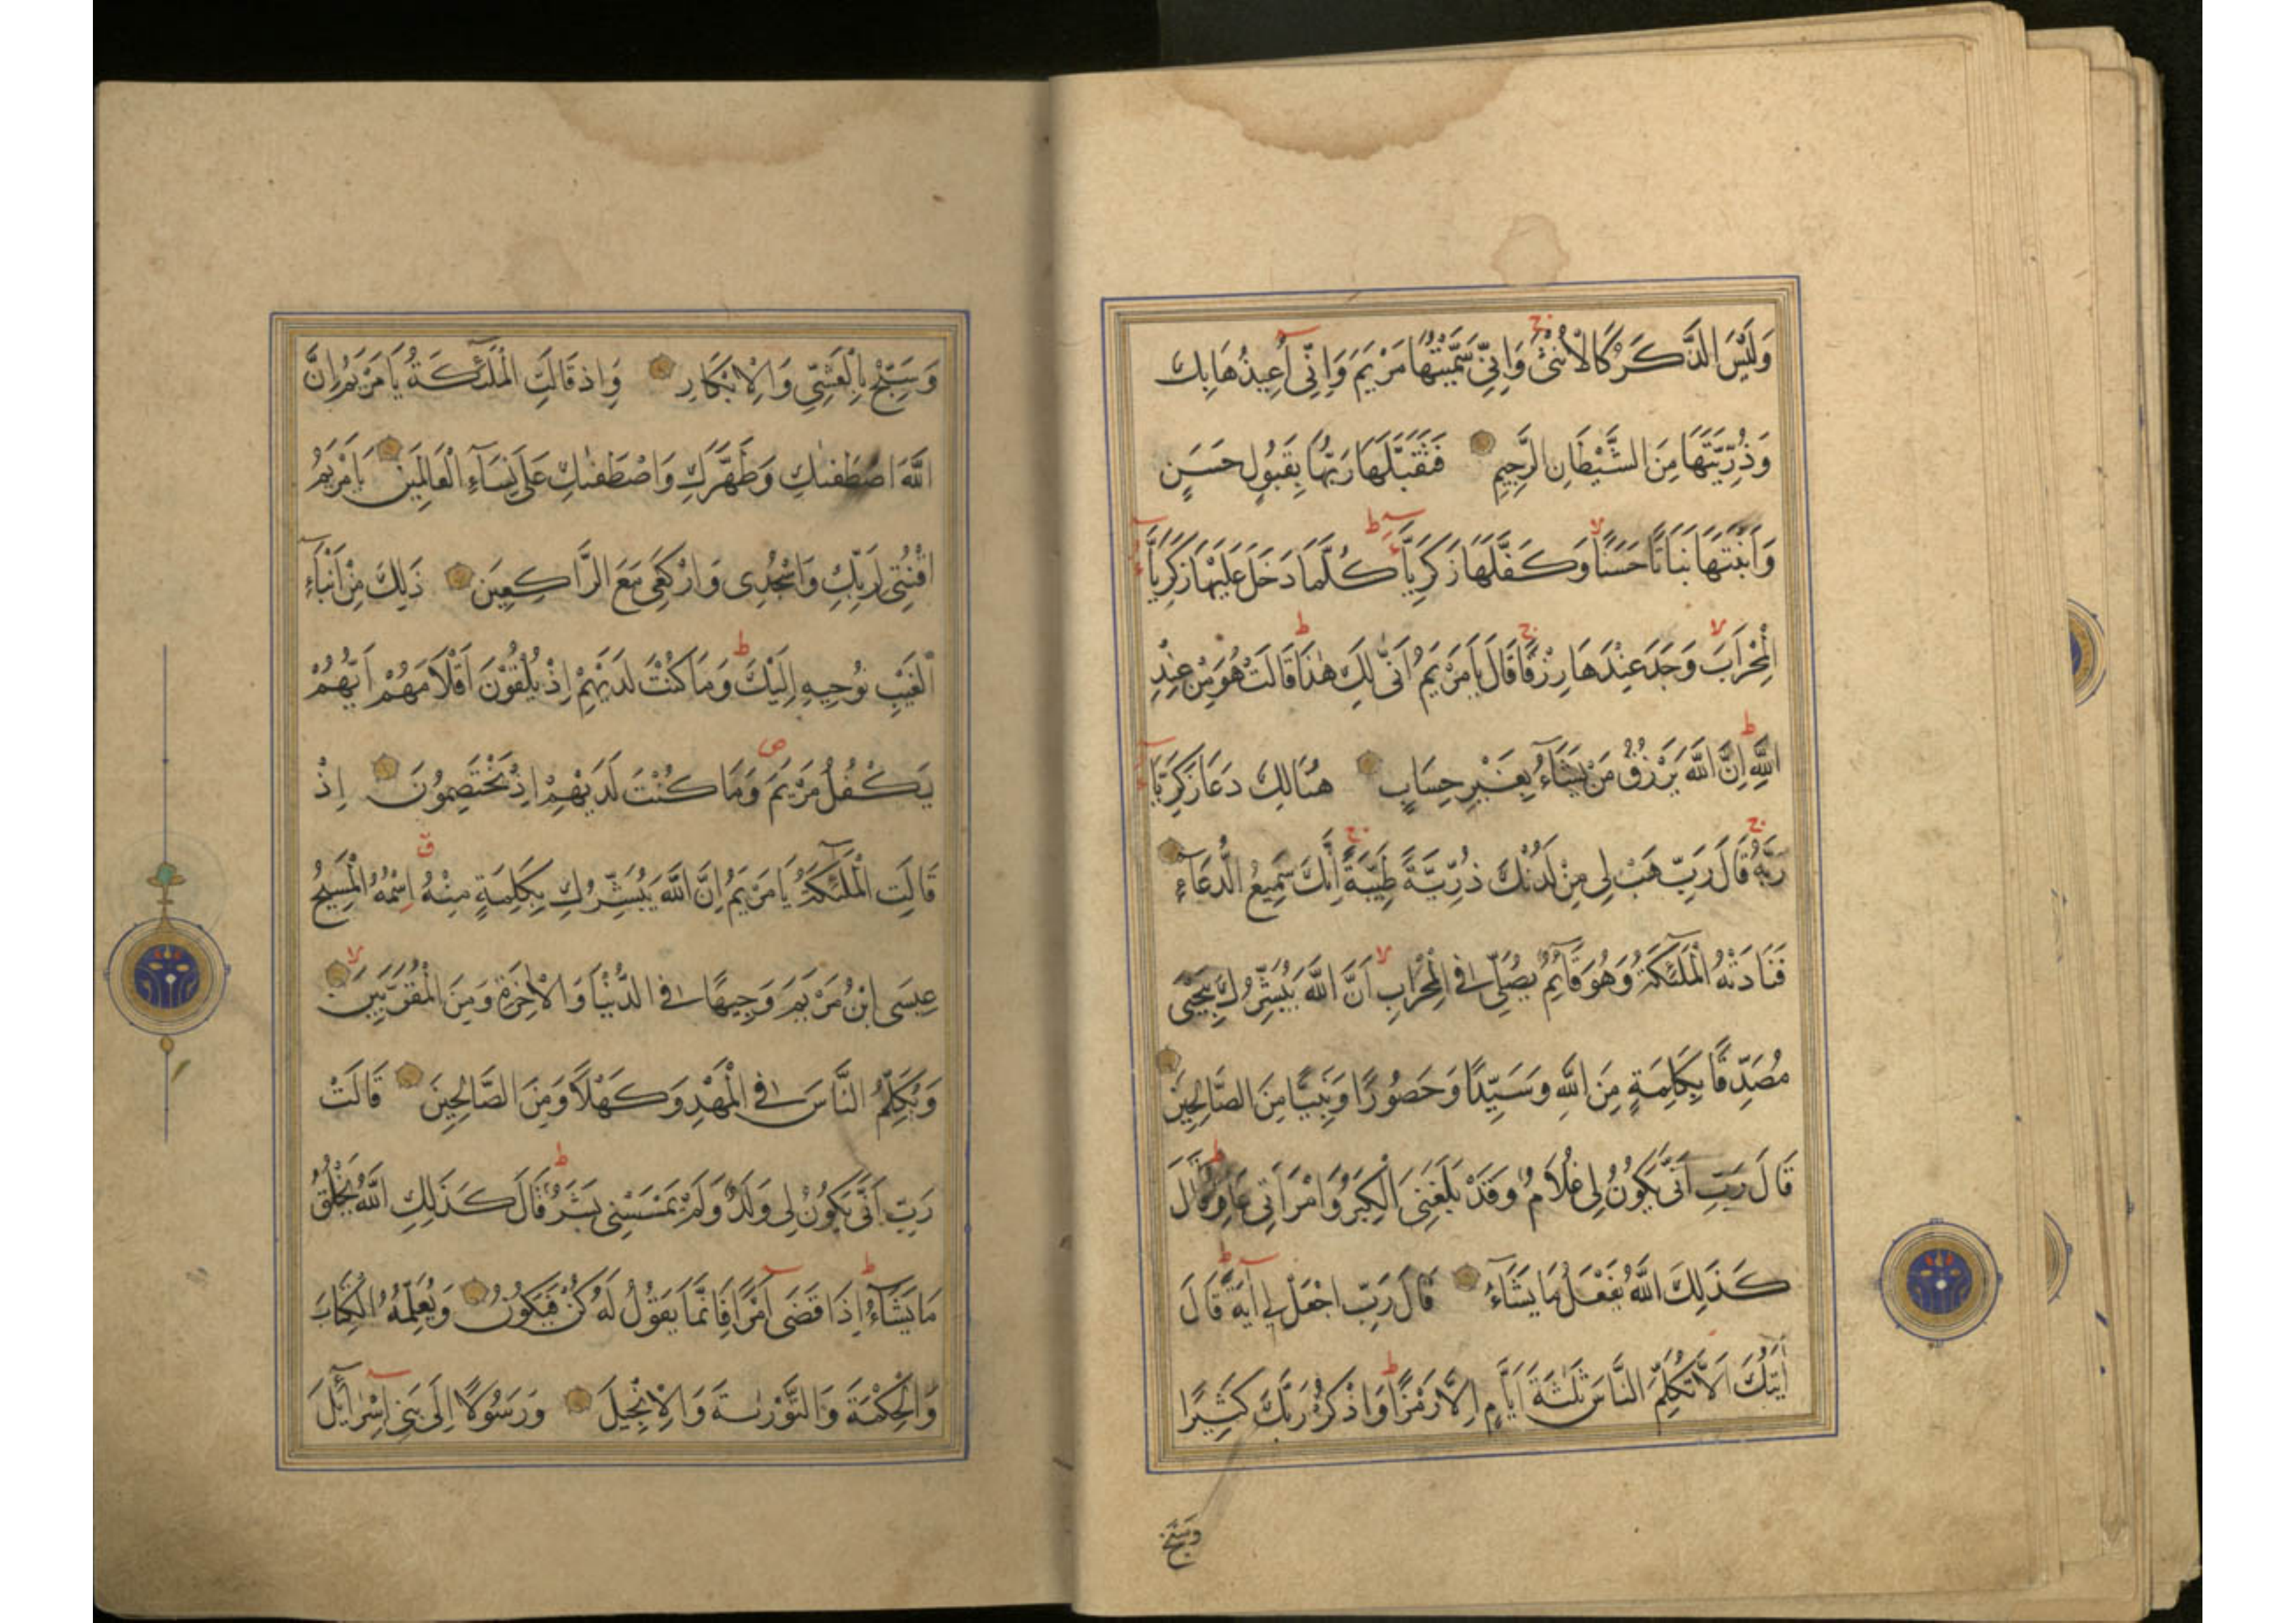 وَلَيْسَ الذَّكَرُ كَالْأُنْثَىٰ وَإِنِّي سَمَّيْتُهَا مَرْيَمَ وَإِنِّي أُعِيذُهَا بِكَ
وَذُرِّيَّتَهَا مِنَ الشَّيْطَانِ الرَّجِيمِ فَتَقَبَّلَهَا رَبُّهَا بِقَبُولٍ حَسَنٍ
وَأَنْبَتَهَا نَبَاتًا حَسَنًا وَكَفَّلَهَا زَكَرِيَّآءُ كُلَّمَا دَخَلَ عَلَيْهَا زَكَرِيَّآءُ
الْمِحْرَابَ وَجَدَ عِنْدَهَا رِزْقًا قَالَ يَا مَرْيَمُ أَنَّىٰ لَكِ هٰذَا قَالَتْ هُوَ مِنْ عِنْدِ
اللَّهِ إِنَّ اللَّهَ يَرْزُقُ مَنْ يَشَآءُ بِغَيْرِ حِسَابٍ هُنَالِكَ دَعَا زَكَرِيَّآءُ
رَبَّهُ قَالَ رَبِّ هَبْ لِي مِنْ لَدُنْكَ ذُرِّيَّةً طَيِّبَةً إِنَّكَ سَمِيعُ الدُّعَآءِ
فَنَادَتْهُ الْمَلٰٓئِكَةُ وَهُوَ قَآئِمٌ يُصَلِّي فِي الْمِحْرَابِ أَنَّ اللَّهَ يُبَشِّرُكَ بِيَحْيَىٰ
مُصَدِّقًا بِكَلِمَةٍ مِنَ اللَّهِ وَسَيِّدًا وَحَصُورًا وَنَبِيًّا مِنَ الصَّالِحِينَ
قَالَ رَبِّ أَنَّىٰ يَكُونُ لِي غُلَامٌ وَقَدْ بَلَغَنِيَ الْكِبَرُ وَامْرَأَتِي عَاقِرٌ قَالَ
كَذَلِكَ اللَّهُ يَفْعَلُ مَا يَشَآءُ قَالَ رَبِّ اجْعَلْ لِي آيَةً قَالَ
آيَتُكَ أَلَّا تُكَلِّمَ النَّاسَ ثَلٰثَةَ أَيَّامٍ إِلَّا رَمْزًا وَاذْكُرْ رَبَّكَ كَثِيرًا
وَسَبِّحْ
وَسَبِّحْ بِالْعَشِيِّ وَالْإِبْكَارِ وَإِذْ قَالَتِ الْمَلٰٓئِكَةُ يَا مَرْيَمُ إِنَّ
اللَّهَ اصْطَفٰىكِ وَطَهَّرَكِ وَاصْطَفٰىكِ عَلَىٰ نِسَآءِ الْعَالَمِينَ يَا مَرْيَمُ
اقْنُتِي لِرَبِّكِ وَاسْجُدِي وَارْكَعِي مَعَ الرَّاكِعِينَ ذَلِكَ مِنْ أَنْبَآءِ
الْغَيْبِ نُوحِيهِ إِلَيْكَ وَمَا كُنْتَ لَدَيْهِمْ إِذْ يُلْقُونَ أَقْلَامَهُمْ أَيُّهُمْ
يَكْفُلُ مَرْيَمَ وَمَا كُنْتَ لَدَيْهِمْ إِذْ يَخْتَصِمُونَ إِذْ
قَالَتِ الْمَلٰٓئِكَةُ يَا مَرْيَمُ إِنَّ اللَّهَ يُبَشِّرُكِ بِكَلِمَةٍ مِنْهُ اسْمُهُ الْمَسِيحُ
عِيسَى ابْنُ مَرْيَمَ وَجِيهًا فِي الدُّنْيَا وَالْآخِرَةِ وَمِنَ الْمُقَرَّبِينَ
وَيُكَلِّمُ النَّاسَ فِي الْمَهْدِ وَكَهْلًا وَمِنَ الصَّالِحِينَ قَالَتْ
رَبِّ أَنَّىٰ يَكُونُ لِي وَلَدٌ وَلَمْ يَمْسَسْنِي بَشَرٌ قَالَ كَذَلِكِ اللَّهُ يَخْلُقُ
مَا يَشَآءُ إِذَا قَضَىٰ أَمْرًا فَإِنَّمَا يَقُولُ لَهُ كُنْ فَيَكُونُ وَيُعَلِّمُهُ الْكِتَابَ
وَالْحِكْمَةَ وَالتَّوْرٰىةَ وَالْإِنْجِيلَ وَرَسُولًا إِلَىٰ بَنِي إِسْرَآئِلَ